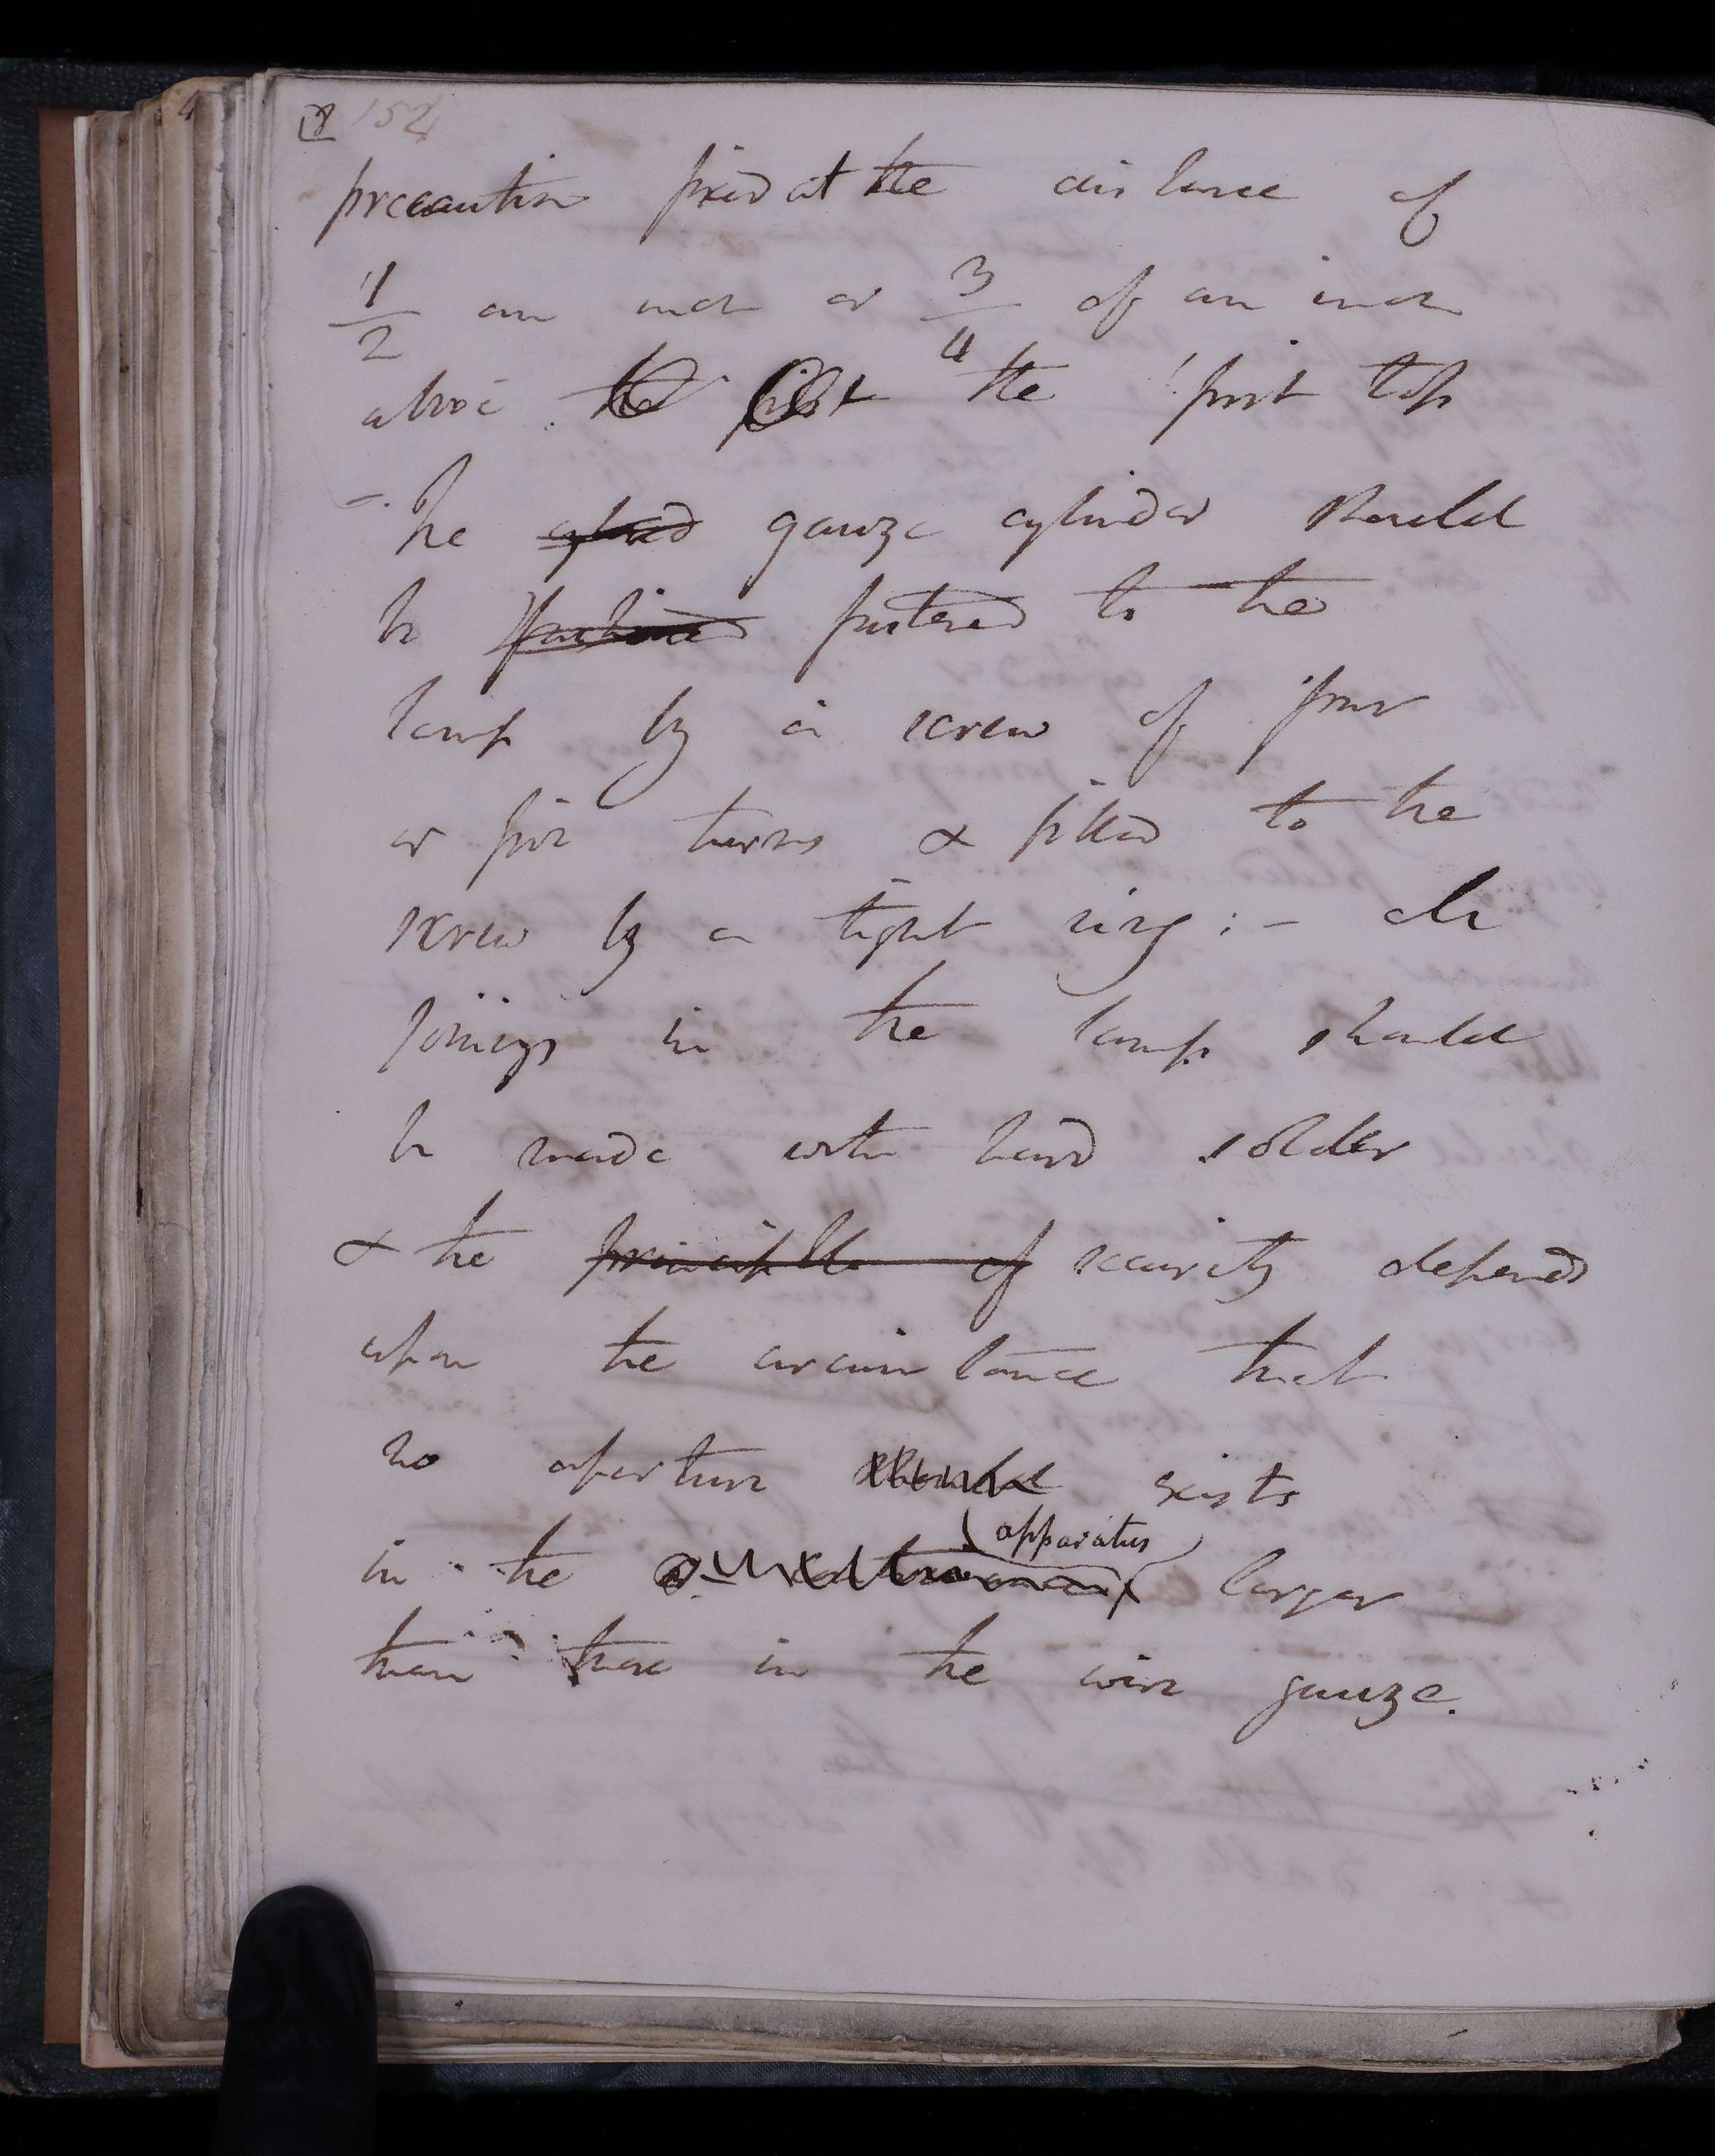 8 152
precaution fixed at the distance of
1/2 an inch or 3/4 of an inch
above the first the first top
- The cylind gauze cylinder should
be fastened fastened to the
lamp by a screw of four
or five turns & fitted to the
screw by a tight ring: - All
joinings in the lamp should
be made with hard solder
& the principle of security depends
upon the circumstance that
no aperture should exists
apparatus
in the larger
than those in the wire gauze.